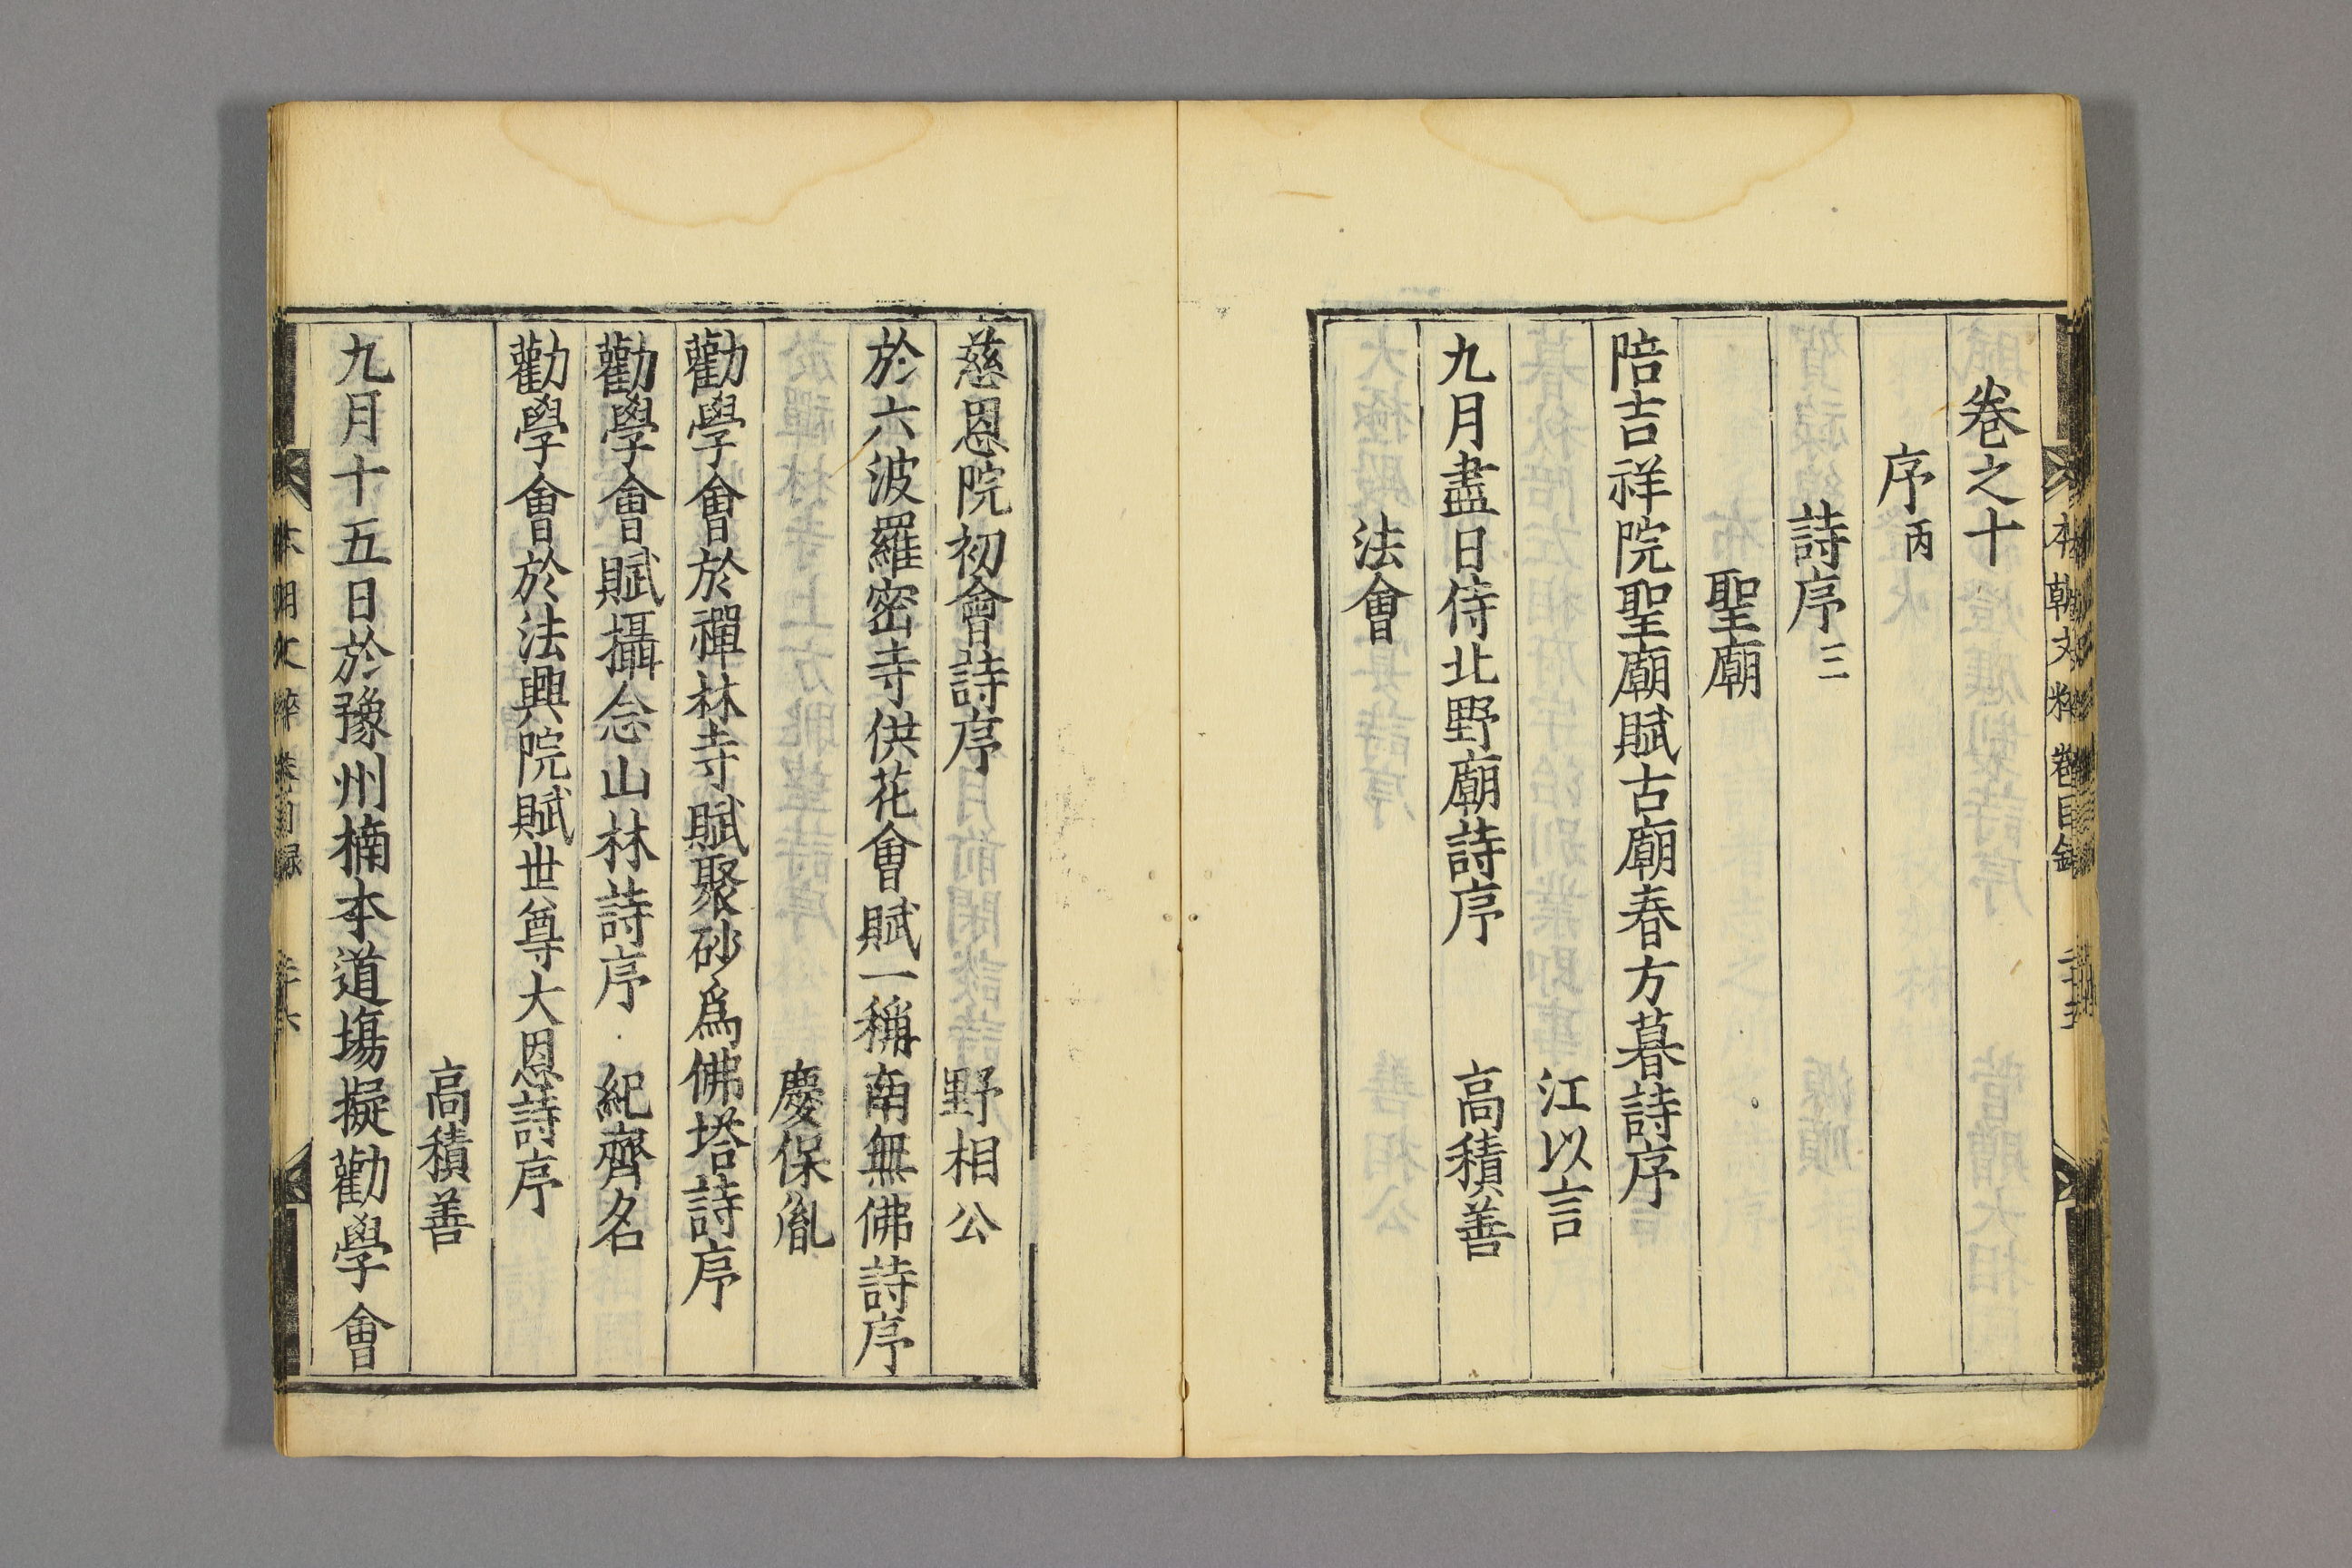 卷之十
序丙
詩序三
聖廟
陪吉祥院聖廟賦古廟春方暮詩序
江以言
九月盡日侍北野廟詩序 高積善
法會
慈恩院初會詩序 野相公
於六波羅密寺供花會賦一稱南無佛詩序
慶保胤
勸學會於禪林寺賦聚砂爲佛塔詩序
勸學會賦攝念山林詩序 紀齊名
勸學會於法興院賦世尊大恩詩序
高積善
九月十五日於豫州楠本道塲擬勸學會
本朝文粹 卷目錄